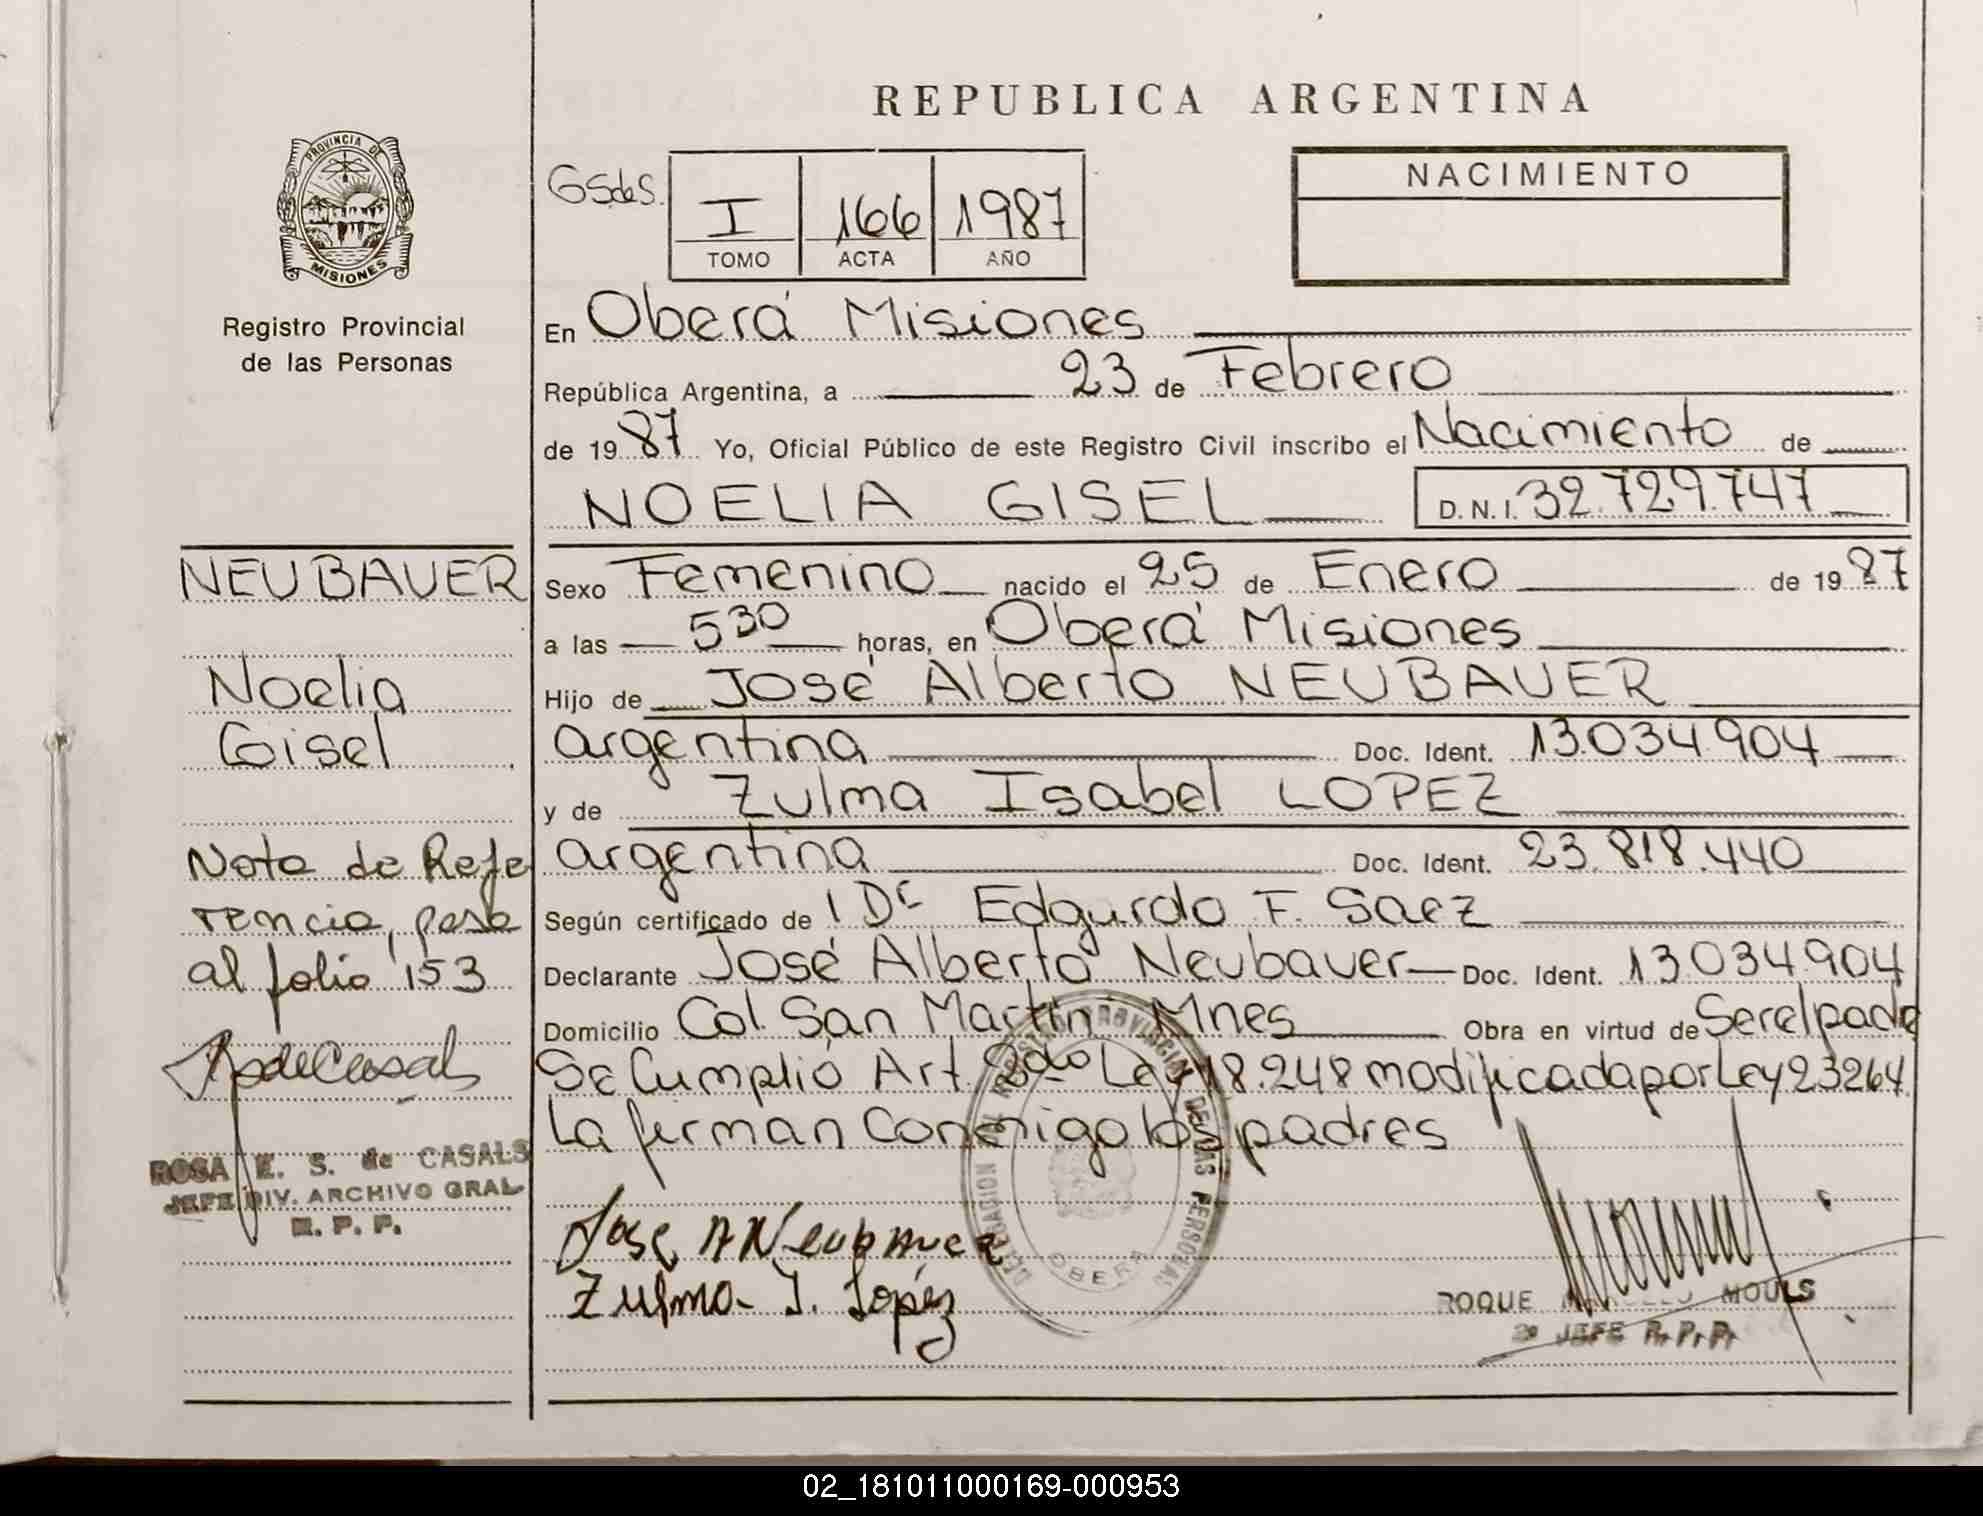 REPUBLICA ARGENTINA
PROVINCIA DE
MISIONES
Registro Provincial
de las Personas
GSdeS.
I 166 1987
TOMO ACTA AÑO
NACIMIENTO
En Oberá Misiones
República Argentina, a 23 de Febrero
de 1987 Yo, Oficial Público de este Registro Civil inscribo el Nacimiento de
NOELIA GISEL D. N. I. 32.729.747
NEUBAUER
Noelia
Gisel
Nota de Refe
rencia, pasa
al folio 153
ROSA E. S. de CASALS
JEFE DIV. ARCHIVO GRAL
R. P. P.
Sexo Femenino nacido el 25 de Enero de 1987
a las 5 30 horas, en Oberá Misiones
Hijo de José Alberto NEUBAUER
argentina Doc. Ident. 13.034.904
y de Zulma Isabel LOPEZ
argentina Doc. Ident. 23.818.440
Según certificado de Dr Edgardo F. Saez
Declarante José Alberto Neubauer Doc. Ident. 13.034.904
Domicilio Col. San Martin Mnes Obra en virtud de Ser el padre
Se Cumplió Art. 2do Ley 18.248 modificada por Ley 23264
La firman Conmigo los padres
Jose A Neubauer
Zulma I. López
DELEGACION DEL REGISTRO PROVINCIAL DE LAS PERSONAS
OBERA
ROQUE MOULS
2º JEFE R.P.P.
02_181011000169-000953